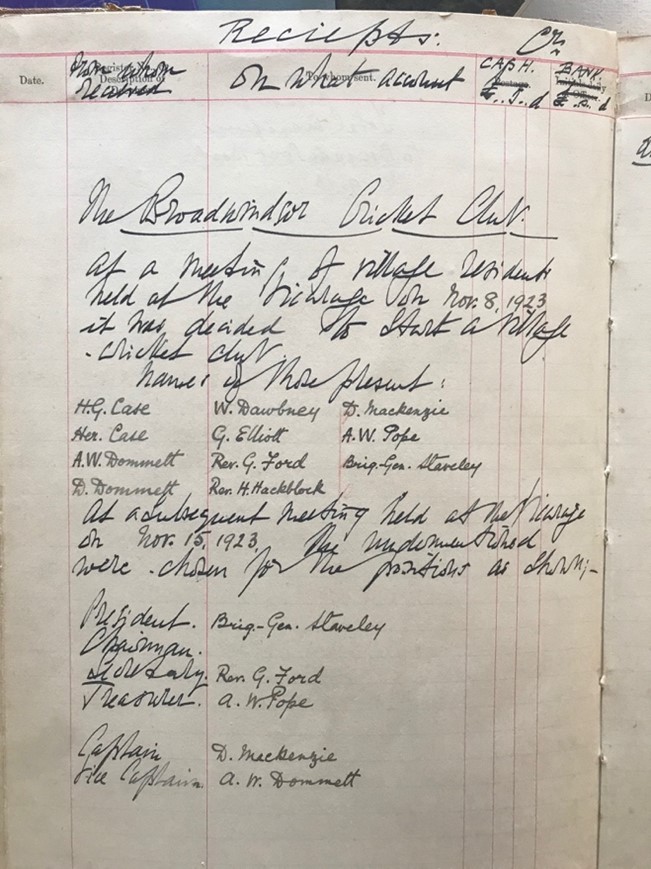 Reciepts: Cr.
Date. From whom received On what account CASH. BANK.
£. s. d £. s. d
The Broadwindsor Cricket Club.
At a meeting of village residents
held at the Vicarage on Nov. 8, 1923
it was decided to start a village
cricket club.
Names of those present:
H.G. Case W. Dawbney D. Mackenzie
Her. Case G. Elliott A.W. Pope
A.W. Dommett Rev. G. Ford Brig-Gen. Staveley
D. Dommett Rev. H. Hackblock
At a subsequent meeting held at the Vicarage
on Nov. 15, 1923, the undermentioned
were chosen for the positions as shown;-
President. Brig-Gen. Staveley
Chairman.
Secretary. Rev. G. Ford
Treasurer. A. W. Pope
Captain D. Mackenzie
Vice Captain. A. W. Dommett